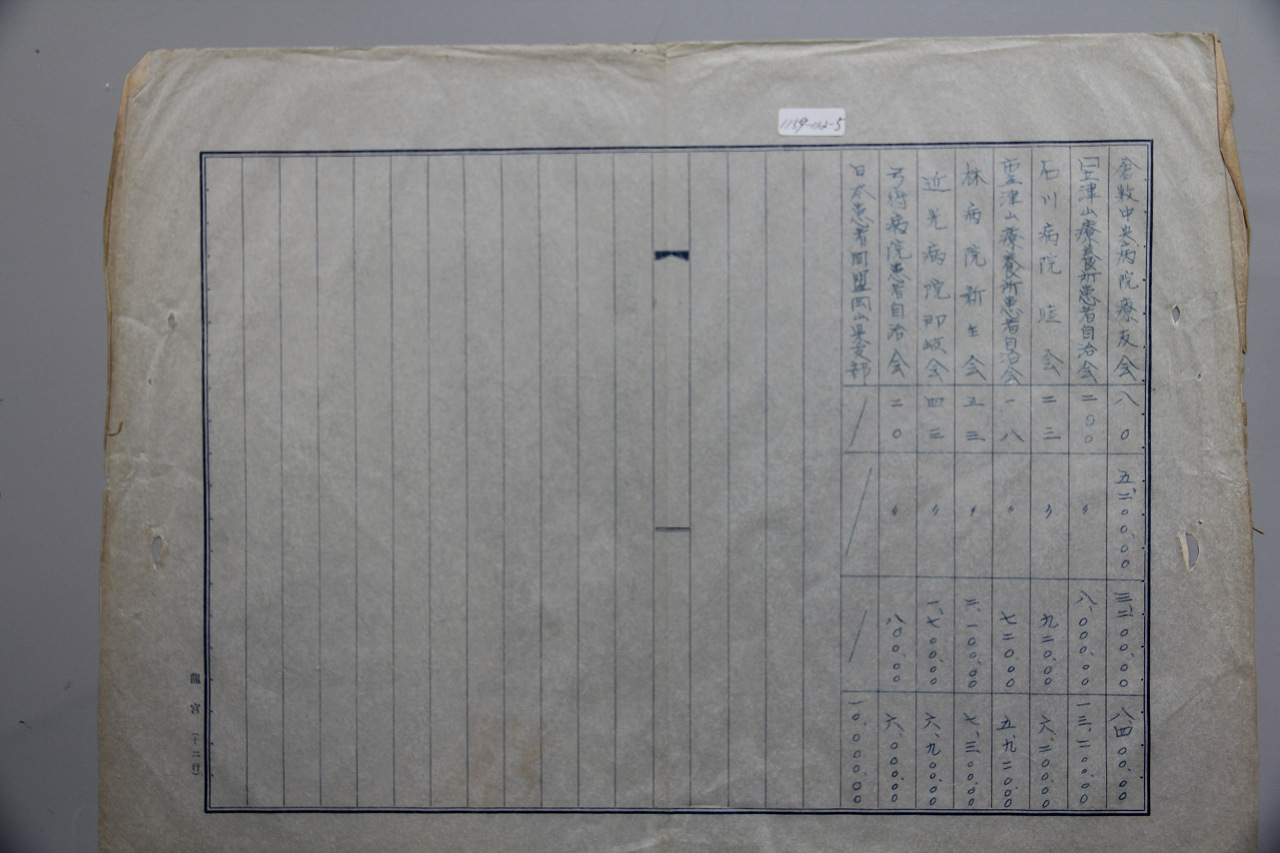 1159-112-5
倉敷中央病院療友会 八〇 五、二〇〇.〇〇 三、二〇〇.〇〇 八、四〇〇.〇〇
国立津山療養所患者自治会 二〇〇 〃 八、〇〇〇.〇〇 一三、二〇〇.〇〇
石川病院 睦会 二三 〃 九二〇.〇〇 六、二〇〇.〇〇
国立津山療養所患者自治会 一八 〃 七二〇.〇〇 五、九二〇.〇〇
林病院新生会 五三 〃 二、一〇〇.〇〇 七、三〇〇.〇〇
近光病院 会 四三 〃 一、七〇〇.〇〇 六、九〇〇.〇〇
病院患者自治会 二〇 〃 八〇〇.〇〇 六、〇〇〇.〇〇
日本患者同盟岡山県支部 一〇、〇〇〇.〇〇
龍宮(十二行)